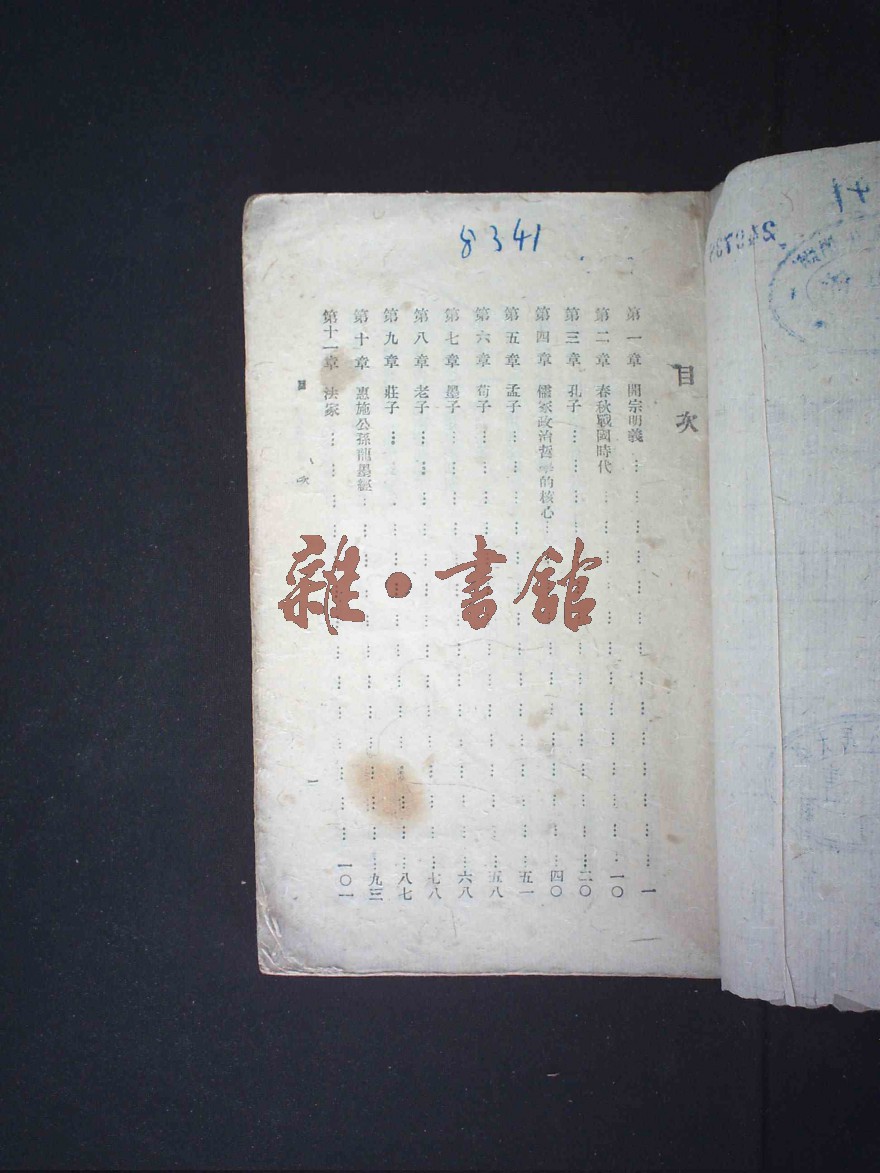 8341
目次
第一章 開宗明義…………一
第二章 春秋戰國時代…………一〇
第三章 孔子…………二〇
第四章 儒家政治哲學的核心…………四〇
第五章 孟子…………五一
第六章 荀子…………五八
第七章 墨子…………六八
第八章 老子…………七八
第九章 莊子…………八七
第十章 惠施公孫龍墨經…………九三
第十一章 法家…………一〇一
目次
一
雜·書館